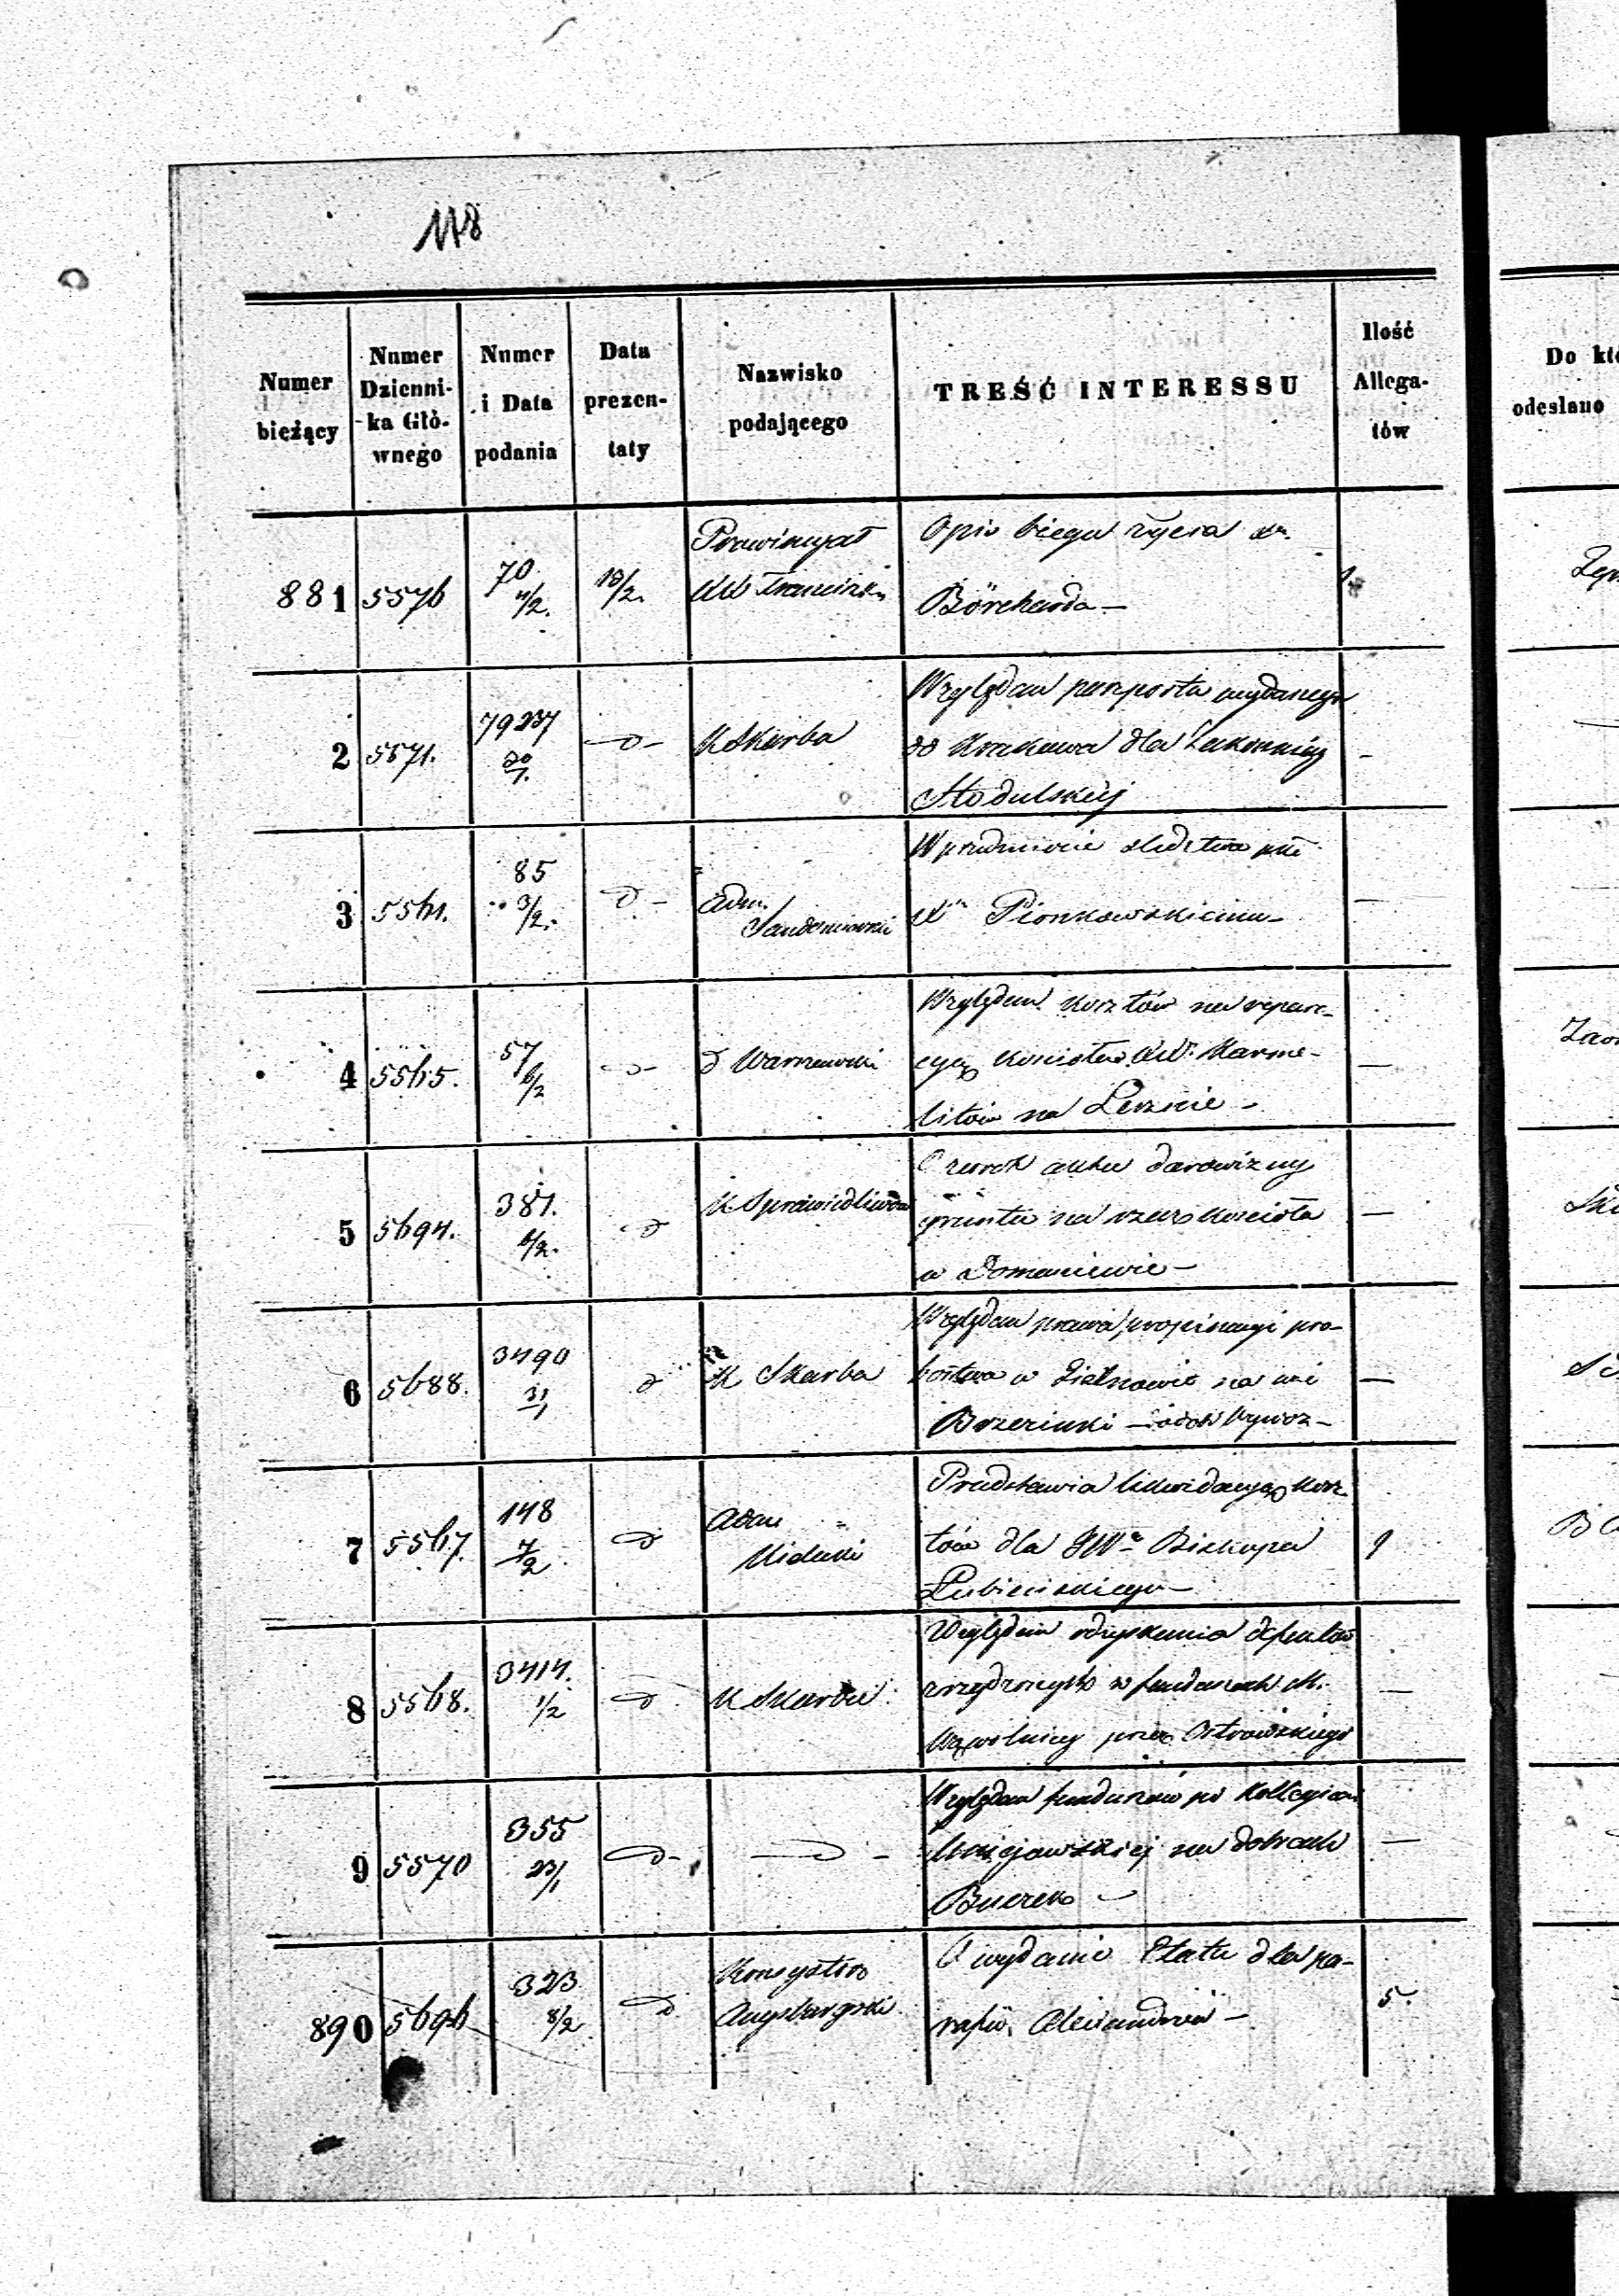 118
Numer bieżący
Numer Dzienni-ka Głó-wnego
Numer i Data podania
Data prezen-taty
Nazwisko podającego
TREŚĆ INTERESSU
Ilość Allega-tów
Do któ
odesłano
881 5576 70 11/2. 13/2. Prowincyał Franciszk. Opis biegu życia Xa.
Börcharda —
2 5571. 79237 20/1. d K Skarbu Względem paszportu wydanego
do Krakowa dla Zakonnicy
Stodulskiej
3 5561. 85 3/2. d Adm. Sandomierski W przedmiocie śledztwa
X Pionkowskiemu
4 5565. 57 6/2 d d Warszawski Względem kosztów na repara-
cyą kościoła XX. Karme-
litów na Lesznie —
5 5694. 387. 6/2. d K Sprawiedliwości O zwrot aktu darowizny
gruntu na rzecz kościoła
w Domaniewie —
6 5688. 3490 31/1 d K Skarbu Względem prawa propinacyi pro-
bostwa w na wsi
Brzezinki —
7 5567. 148 7/2 d Adm. Kielecki Przedstawia likwidacyą kosz-
tów dla JW Biskupa 9
Łubieńskiego —
8 5568. 3414. 1/2 d K Skarbu Względem odzyskania
zrządzonych w funduszach
Wąwolnicy przez Ostrowskiego
9 5570 355 23/1 d d Względem funduszów po Kollegiacie
na dobrach
Buczek —
890 5696 323 8/2 d Konsystorz Augsburgski O wydanie Etatu dla pa- 5.
rafii Alexandrów —